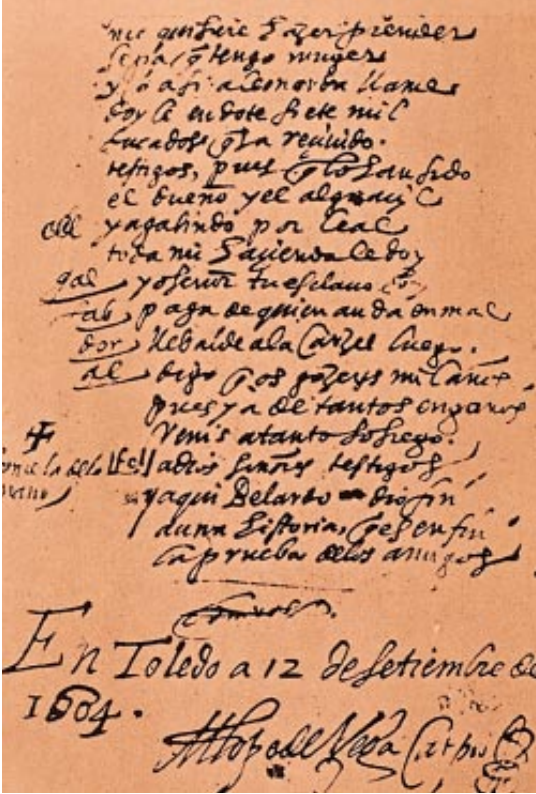 me quisiere hazer prender
sepa q̃ tengo muger
doy le en dote siete mil
ducados q̃ la
testigos, pues q̃ lo han sido
el bueno y el alguazil
y a galindo por leal
toda mi hazienda le doy
gal yo señor tu esclavo soy
fab paga de quien anda en mal
dor llebalde a la carzel luego.
al digo q̃ os gozeys mil años
pues ya de tantos engaños
venis a tanto sosiego.
fel adios señores testigos
y aqui Belardo dio fin
a una historia, q̃ es en fin
la prueba de los amigos
En Toledo a 12 de setiembre de
1604.
Lope de Vega Carpio